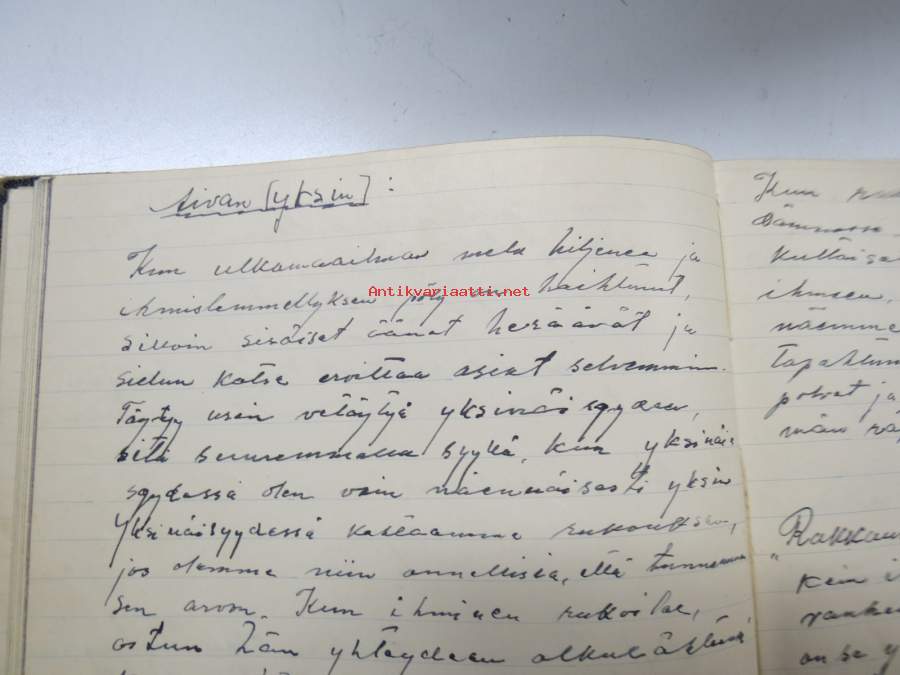 Aivan [yksin]:
Kun ulkomaailman melu hiljenee ja
ihmislemmellyksen pöly on haihtunut,
Antikvariaatti.net
silloin sisäiset äänet heräävät ja
sielun katse eroittaa asiat selvemmin.
Täytyy usein vetäytyä yksinäisyyteen,
sitä suuremmalla syyllä, kun yksinäi-
syydessä olen vain näennäisesti yksin
Yksinäisyydessä kohtaamme rukouksen,
jos olemme niin onnellisia, että tunnemme
sen arvon. Kun ihminen rukoilee,
astuu hän yhteydeen alkulähteen
Kun
kultaisa
ihmisen,
näemme
tapahtun
polvet ja
"Rakkau
kein
vanhem
on se y